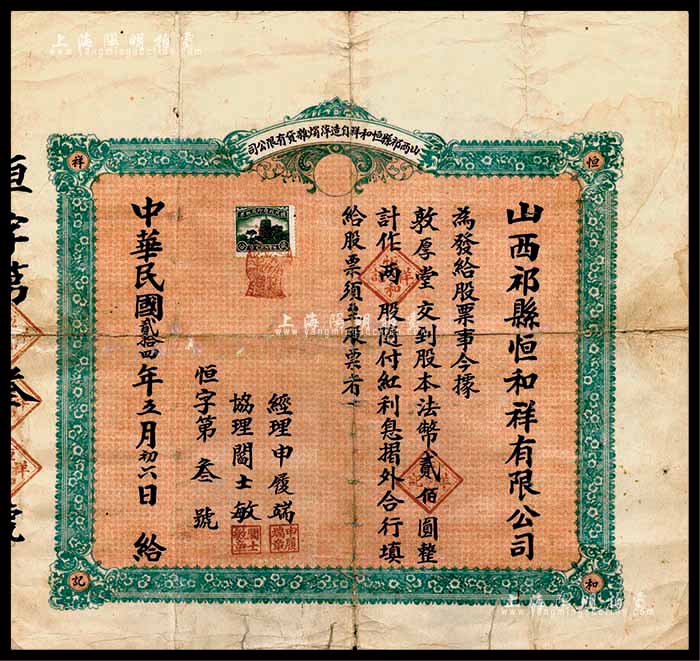 上海陽明拍賣
www.yangmingauction.com
山西祁縣恒和祥自造洋燭雜貨有限公司
恒
和
祥
記
山西祁縣恒和祥有限公司
為發給股票事今據
敦厚堂交到股本法幣貳佰圓整
計作兩股隨付紅利息摺外合行填
給股票須至股票者
經理申履端
協理閻士敏
恒字第叁號
中華民國貳拾四年五月初六日給
恒字第叁號
申履端章
閻士敏章
上海陽明拍賣
上海陽明拍賣